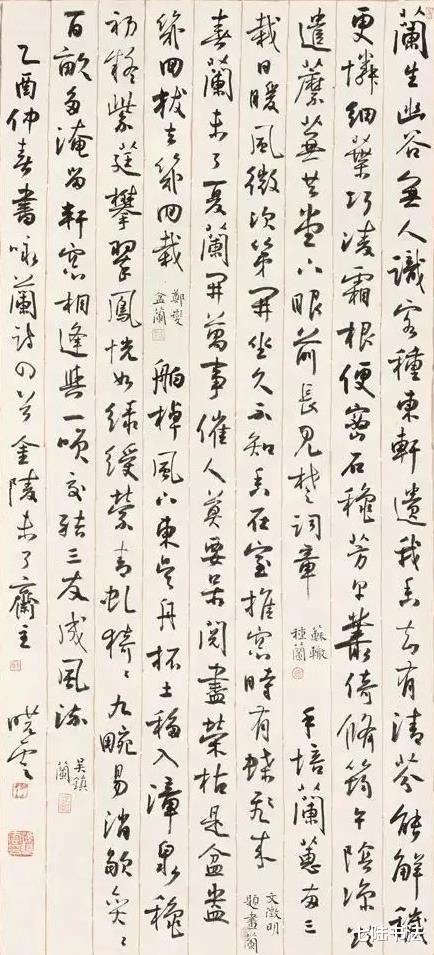 蘭生幽谷無人識客種東軒遺我香知有清芬能解穢
更憐細葉巧凌霜根便密石穐芳早叢倚脩筠午陰涼欲
遣蘼蕪共堂下眼前長見楚詞章 蘇轍 種蘭 手培蘭蕙兩三
栽日暖風微次第開坐久不知香在室推窗時有蝶飛來 文徵明 題畫蘭
春蘭未了夏蘭開萬事催人莫要呆閱盡榮枯是盆盎
幾回拔去幾回栽 鄭燮 盆蘭 舶棹風下東吳舟杯土移入漳泉穐
初擬紫莖攀翠鳳恍如綠綬縈青虬猗〻九畹易消歇奕〻
百畝多淹留軒窗相逢與一笑交結三友成風流 吳鎮 蘭
乙酉仲春書咏蘭詩四首金陵未了齋主 曉雲
七陆书法